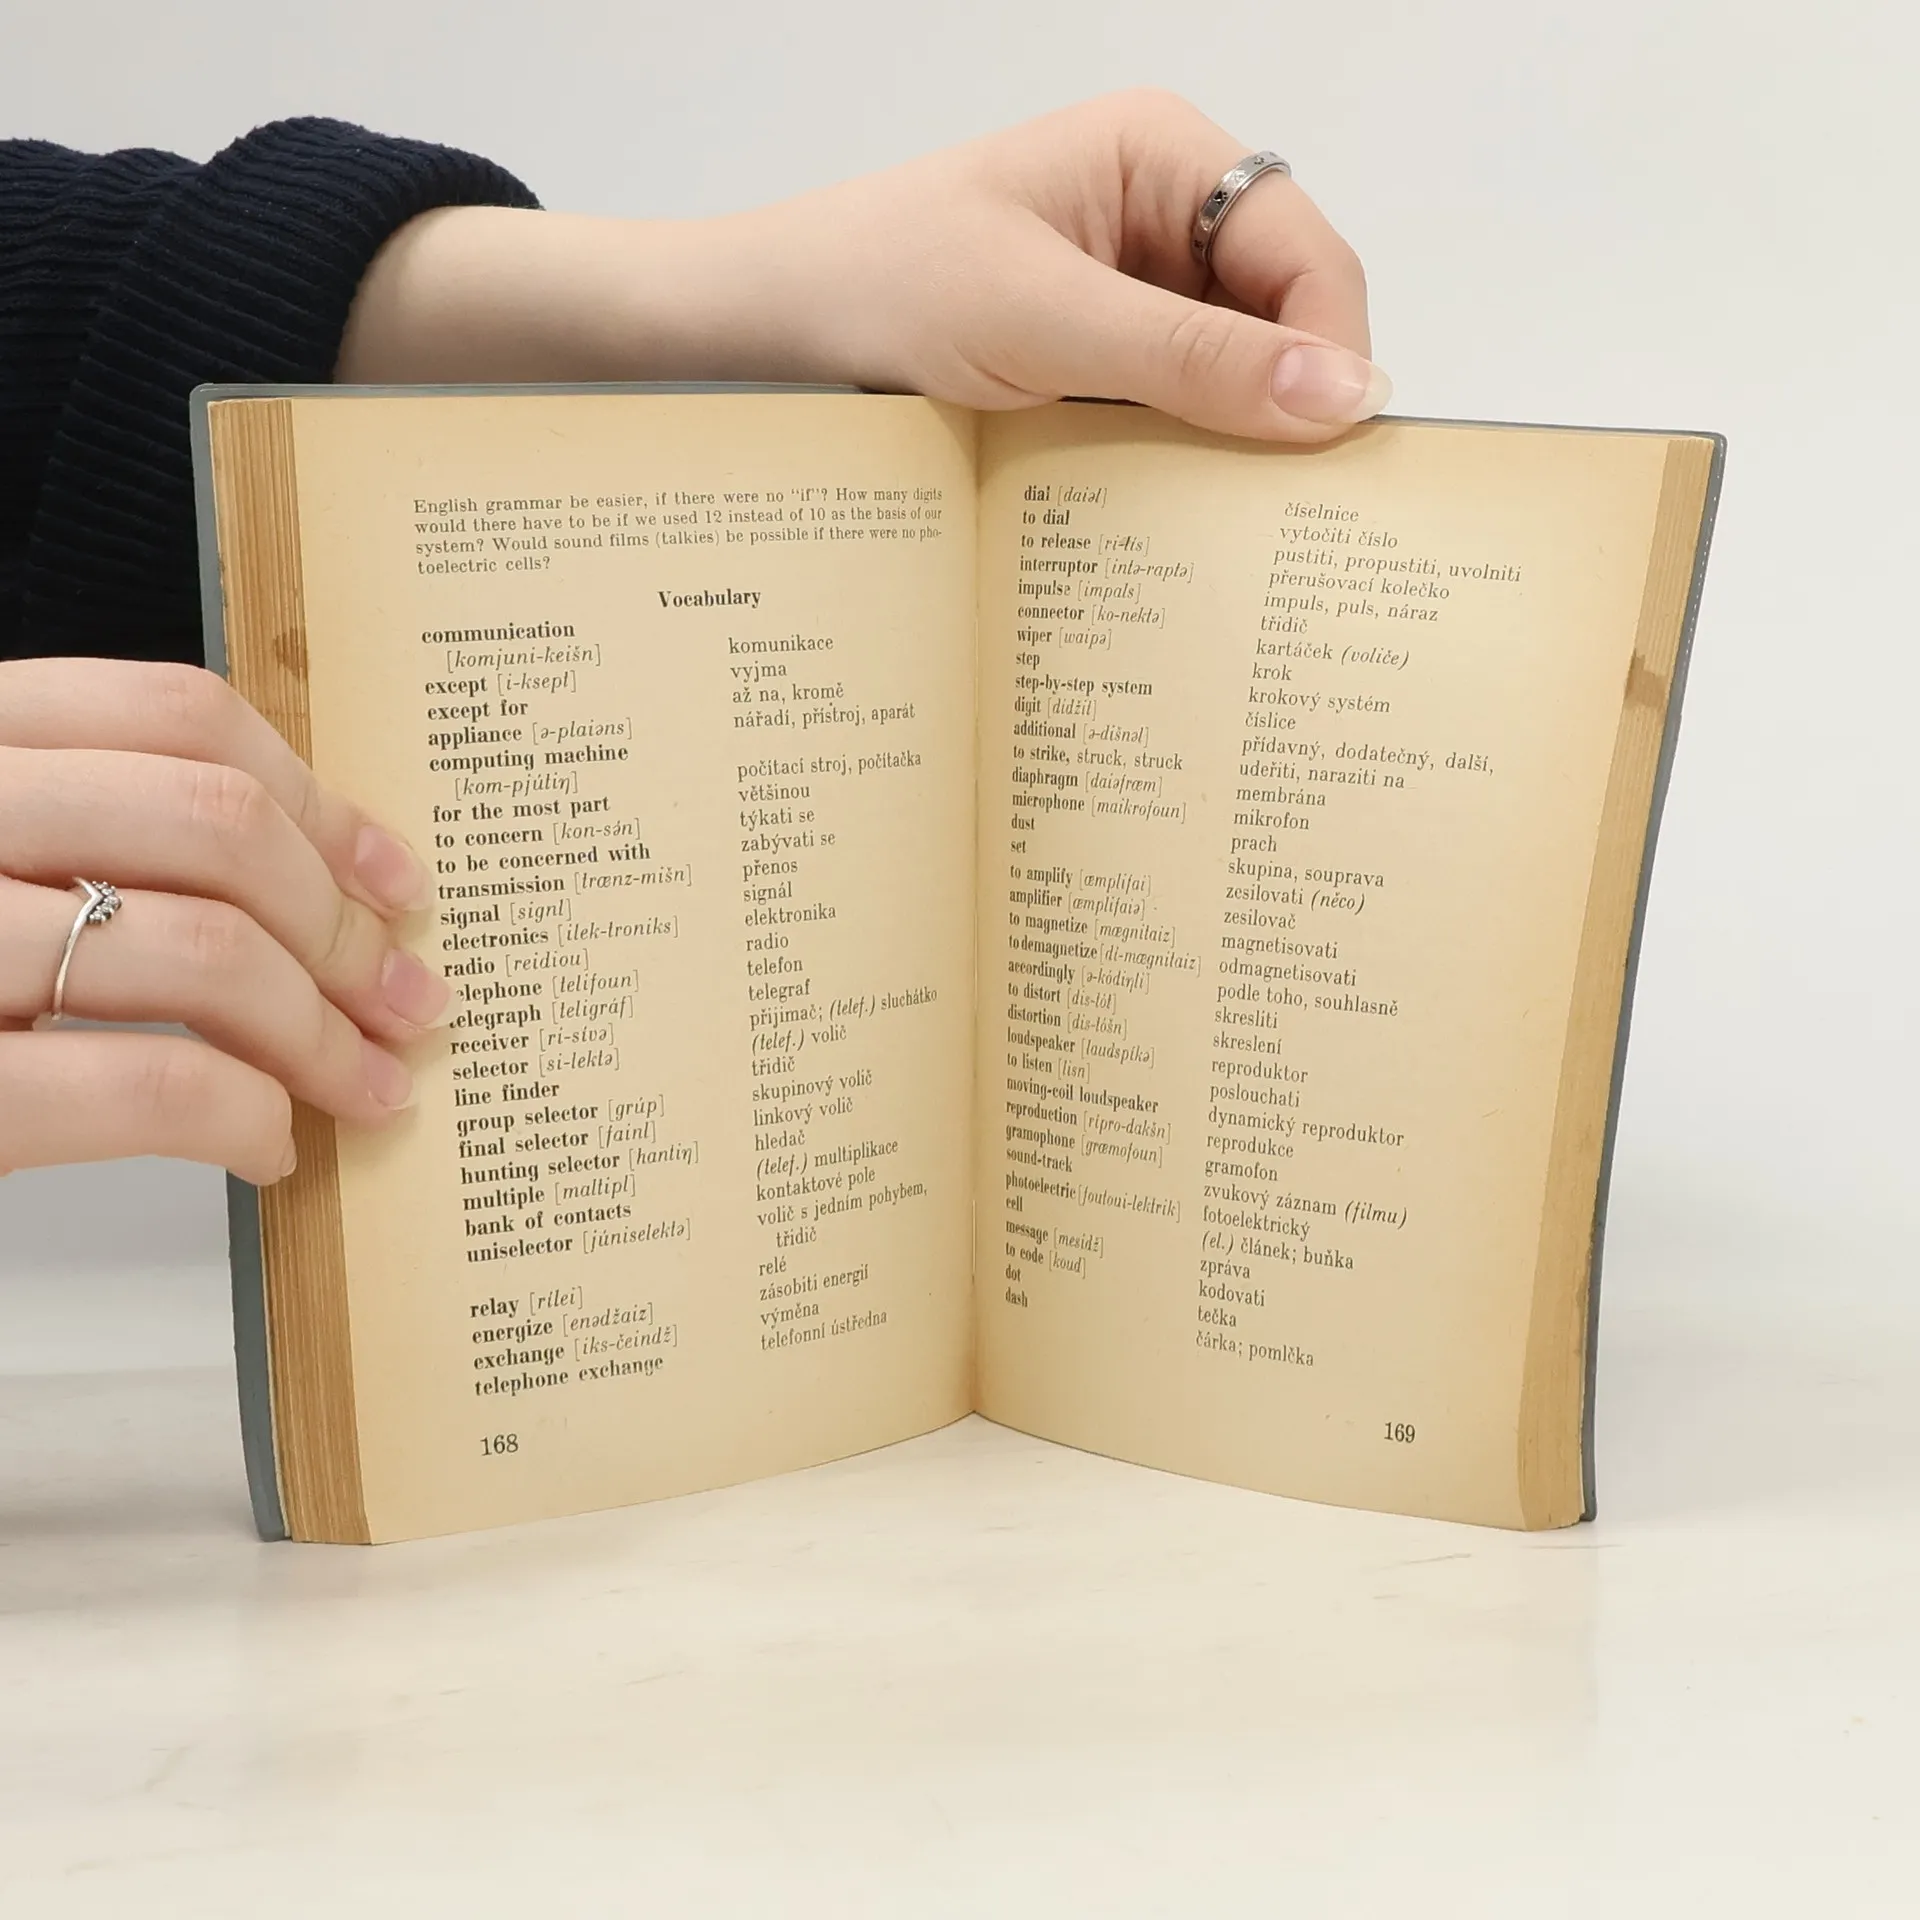 English grammar be easier, if there were no "if"? How many digits
would there have to be if we used 12 instead of 10 as the basis of our
system? Would sound films (talkies) be possible if there were no pho-
toelectric cells?
Vocabulary
communication
[komjuni-keišn] komunikace
except [i-ksept] vyjma
except for až na, kromě
appliance [ə-plaiəns] nářadí, přístroj, aparát
computing machine
[kom-pjútiŋ] počítací stroj, počítačka
for the most part většinou
to concern [kon-sə́n] týkati se
to be concerned with zabývati se
transmission [trænz-mišn] přenos
signal [signl] signál
electronics [ilek-troniks] elektronika
radio [reidiou] radio
elephone [telifoun] telefon
elegraph [teligráf] telegraf
receiver [ri-sívə] přijimač; (telef.) sluchátko
selector [si-lektə] (telef.) volič
line finder třidič
group selector [grúp] skupinový volič
final selector [fainl] linkový volič
hunting selector [hantiŋ] hledač
multiple [maltipl] (telef.) multiplikace
bank of contacts kontaktové pole
uniselector [júniselektə] volič s jedním pohybem,
třidič
relay [rílei] relé
energize [enədžaiz] zásobiti energií
exchange [iks-čeindž] výměna
telephone exchange telefonní ústředna
168
dial [daiəl] číselnice
to dial vytočiti číslo
to release [ri-lís] pustiti, propustiti, uvolniti
interruptor [intə-raptə] přerušovací kolečko
impulse [impals] impuls, puls, náraz
connector [ko-nektə] třidič
wiper [waipə] kartáček (voliče)
step krok
step-by-step system krokový systém
digit [didžit] číslice
additional [ə-dišnəl] přídavný, dodatečný, další,
to strike, struck, struck udeřiti, naraziti na
diaphragm [daiəfræm] membrána
microphone [maikrofoun] mikrofon
dust prach
set skupina, souprava
to amplify [æmplifai] zesilovati (něco)
amplifier [æmplifaiə] zesilovač
to magnetize [mægnitaiz] magnetisovati
to demagnetize [dí-mægnitaiz] odmagnetisovati
accordingly [ə-kódiŋli] podle toho, souhlasně
to distort [dis-tót] skresliti
distortion [dis-tóšn] skreslení
loudspeaker [laudspíkə] reproduktor
to listen [lisn] poslouchati
moving-coil loudspeaker dynamický reproduktor
reproduction [rípro-dakšn] reprodukce
gramophone [græmofoun] gramofon
sound-track zvukový záznam (filmu)
photoelectric [foutoui-lektrik] fotoelektrický
cell (el.) článek; buňka
message [mesidž] zpráva
to code [koud] kodovati
dot tečka
dash čárka; pomlčka
169